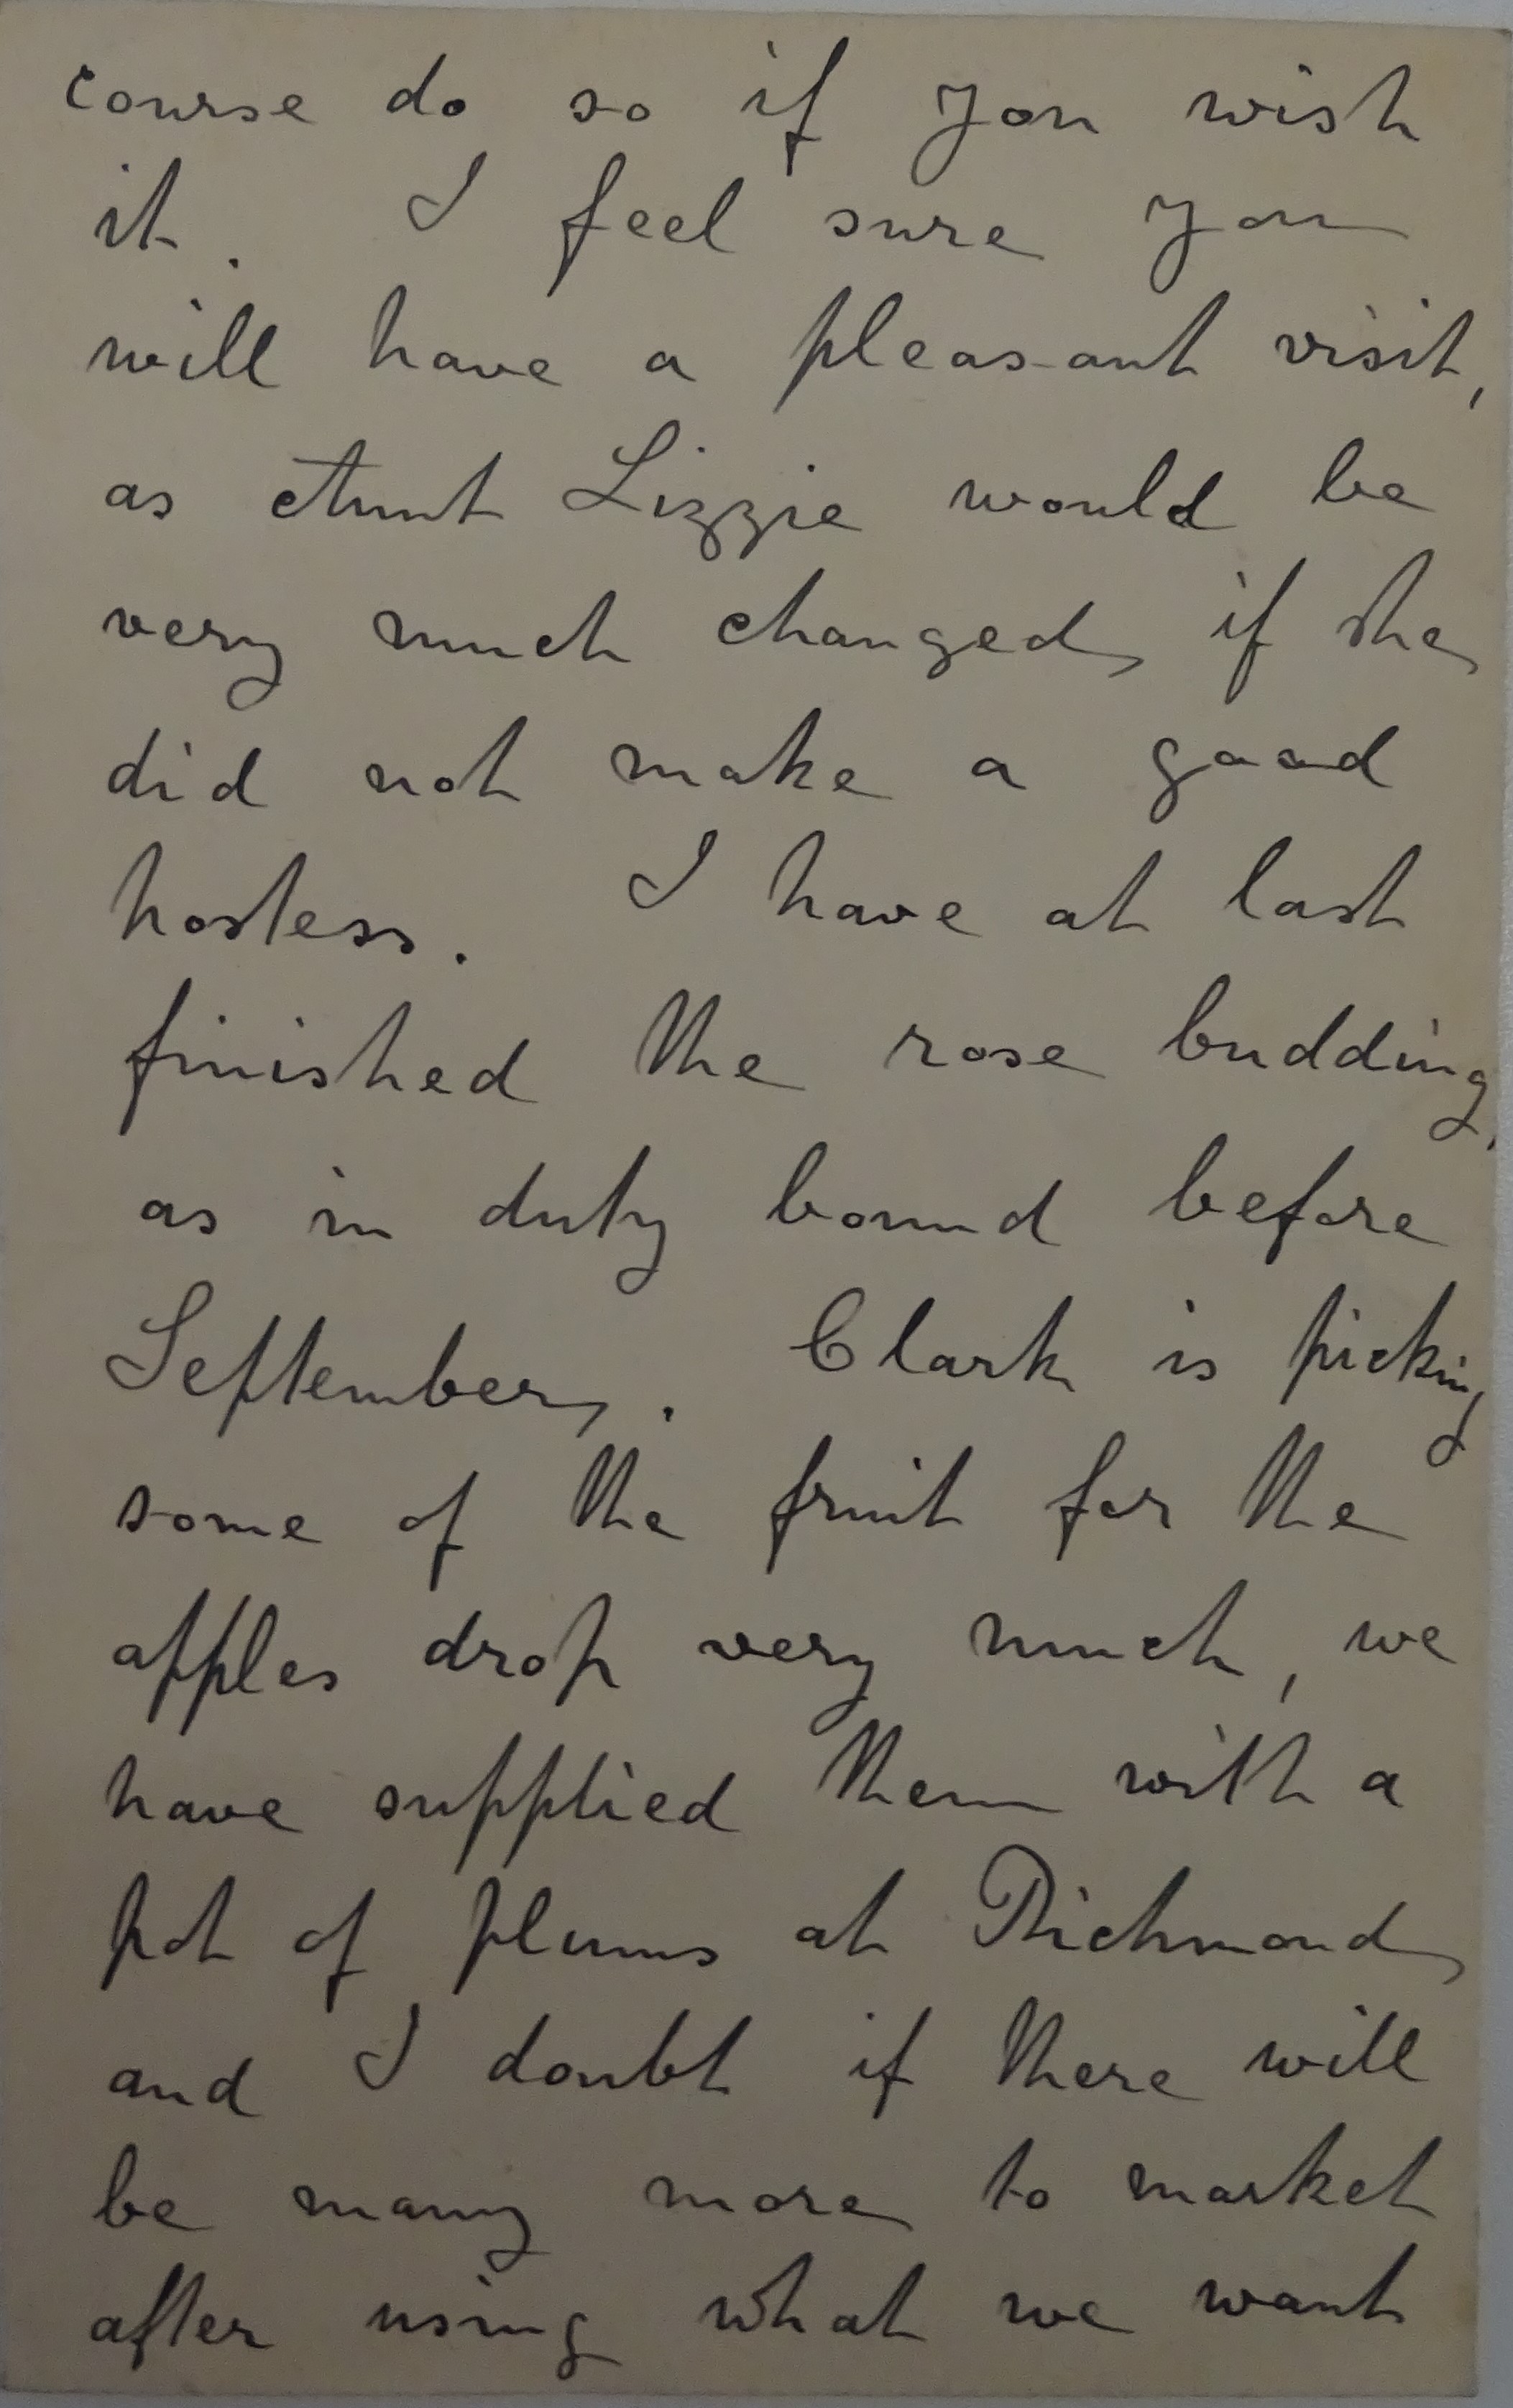 course do so if you wish
it. I feel sure you
will have a pleasant visit,
as Aunt Lizzie would be
very much changed if she
did not make a good
hostess. I have at last
finished the rose budding,
as in duty bound before
September. Clark is picking
some of the fruit for the
apples drop very much, we
have supplied them with a
pot of plums at Richmond
and I doubt if there will
be many more to market
after using what we want